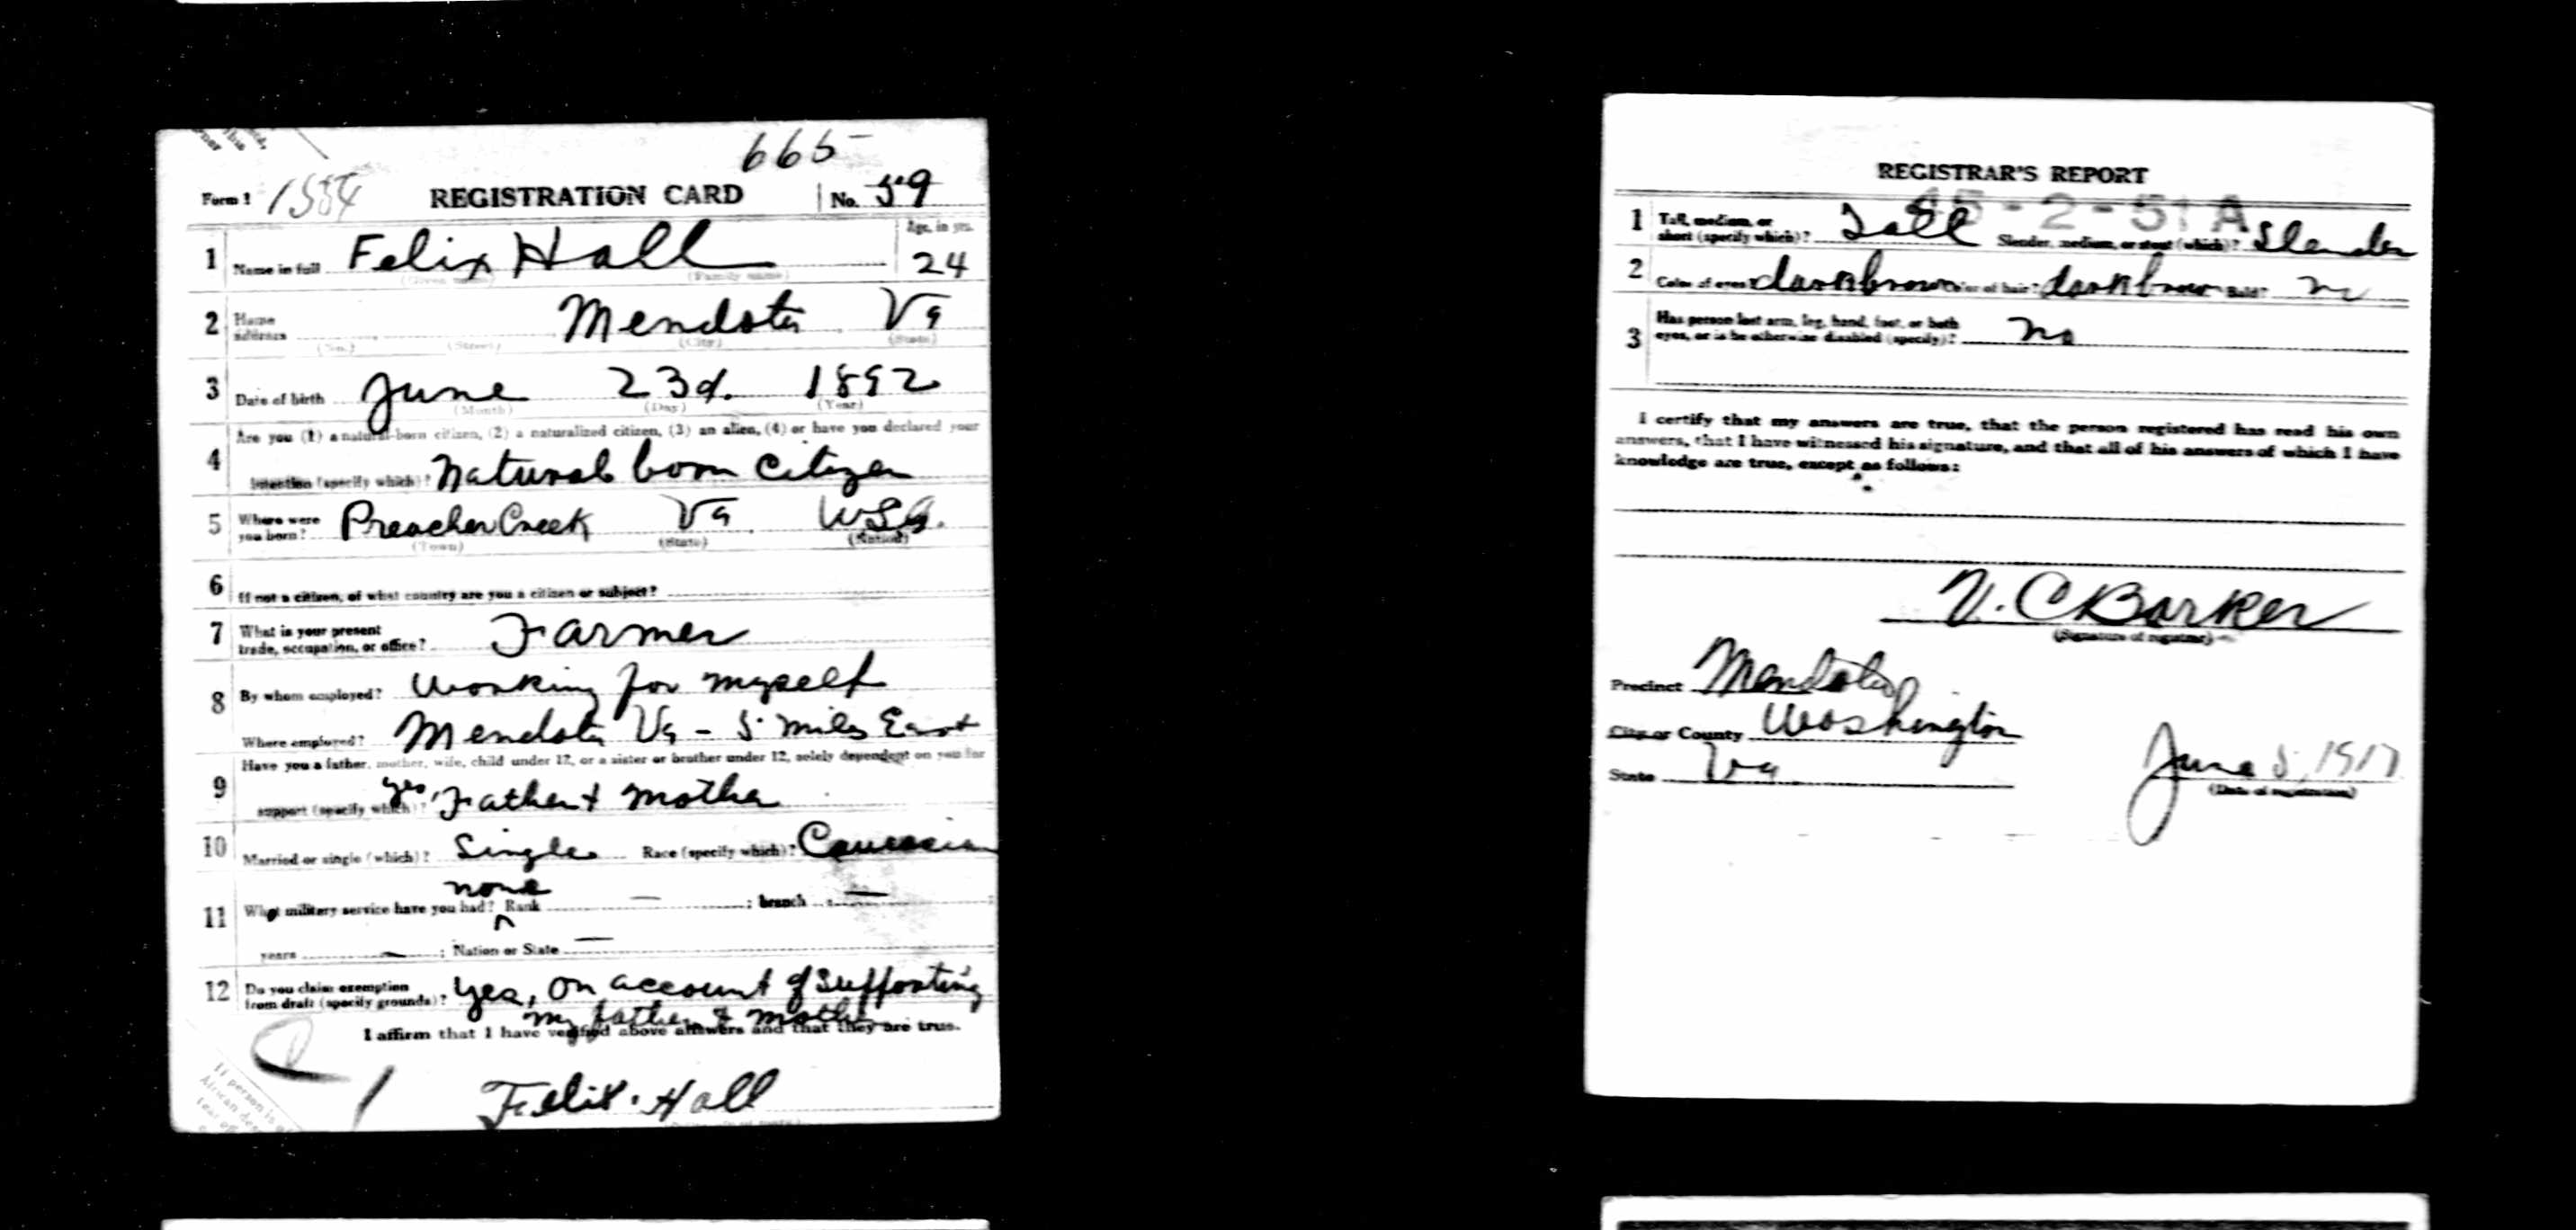 665
Form 1 REGISTRATION CARD No. 59
1 Name in full Felix Hall Age, in yrs. 24
(Given name) (Family name)
2 Home address Mendota Va
(No.) (Street) (City) (State)
3 Date of birth June 23d. 1892
(Month) (Day) (Year)
Are you (1) a natural-born citizen, (2) a naturalized citizen, (3) an alien, (4) or have you declared your
4 intention (specify which)? Natural born citizen
5 Where were you born? Preacher Creek Va USA.
(Town) (State) (Nation)
6 If not a citizen, of what country are you a citizen or subject?
7 What is your present trade, occupation, or office? Farmer
8 By whom employed? Working for myself
Where employed? Mendota Va - 5 miles East
Have you a father, mother, wife, child under 12, or a sister or brother under 12, solely dependent on you for
9 support (specify which)? yes, Father & mother
10 Married or single (which)? Single Race (specify which)? Caucasian
none
11 What military service have you had? Rank — ; branch —;
years — ; Nation or State —
12 Do you claim exemption from draft (specify grounds)? Yes, on account of supporting
my father & mother
I affirm that I have verified above answers and that they are true.
Felix Hall
If person is
African des
tear of
REGISTRAR'S REPORT
45-2-51 A
1 Tall, medium, or short (specify which)? Tall Slender, medium, or stout (which)? Slender
2 Color of eyes? dark brown Color of hair? dark brown Bald? no
3 Has person lost arm, leg, hand, foot, or both eyes, or is he otherwise disabled (specify)? no
I certify that my answers are true, that the person registered has read his own
answers, that I have witnessed his signature, and that all of his answers of which I have
knowledge are true, except as follows:
V. C Barker
(Signature of registrar)
Precinct Mendota
City or County Washington
State Va
June 5, 1917
(Date of registration)